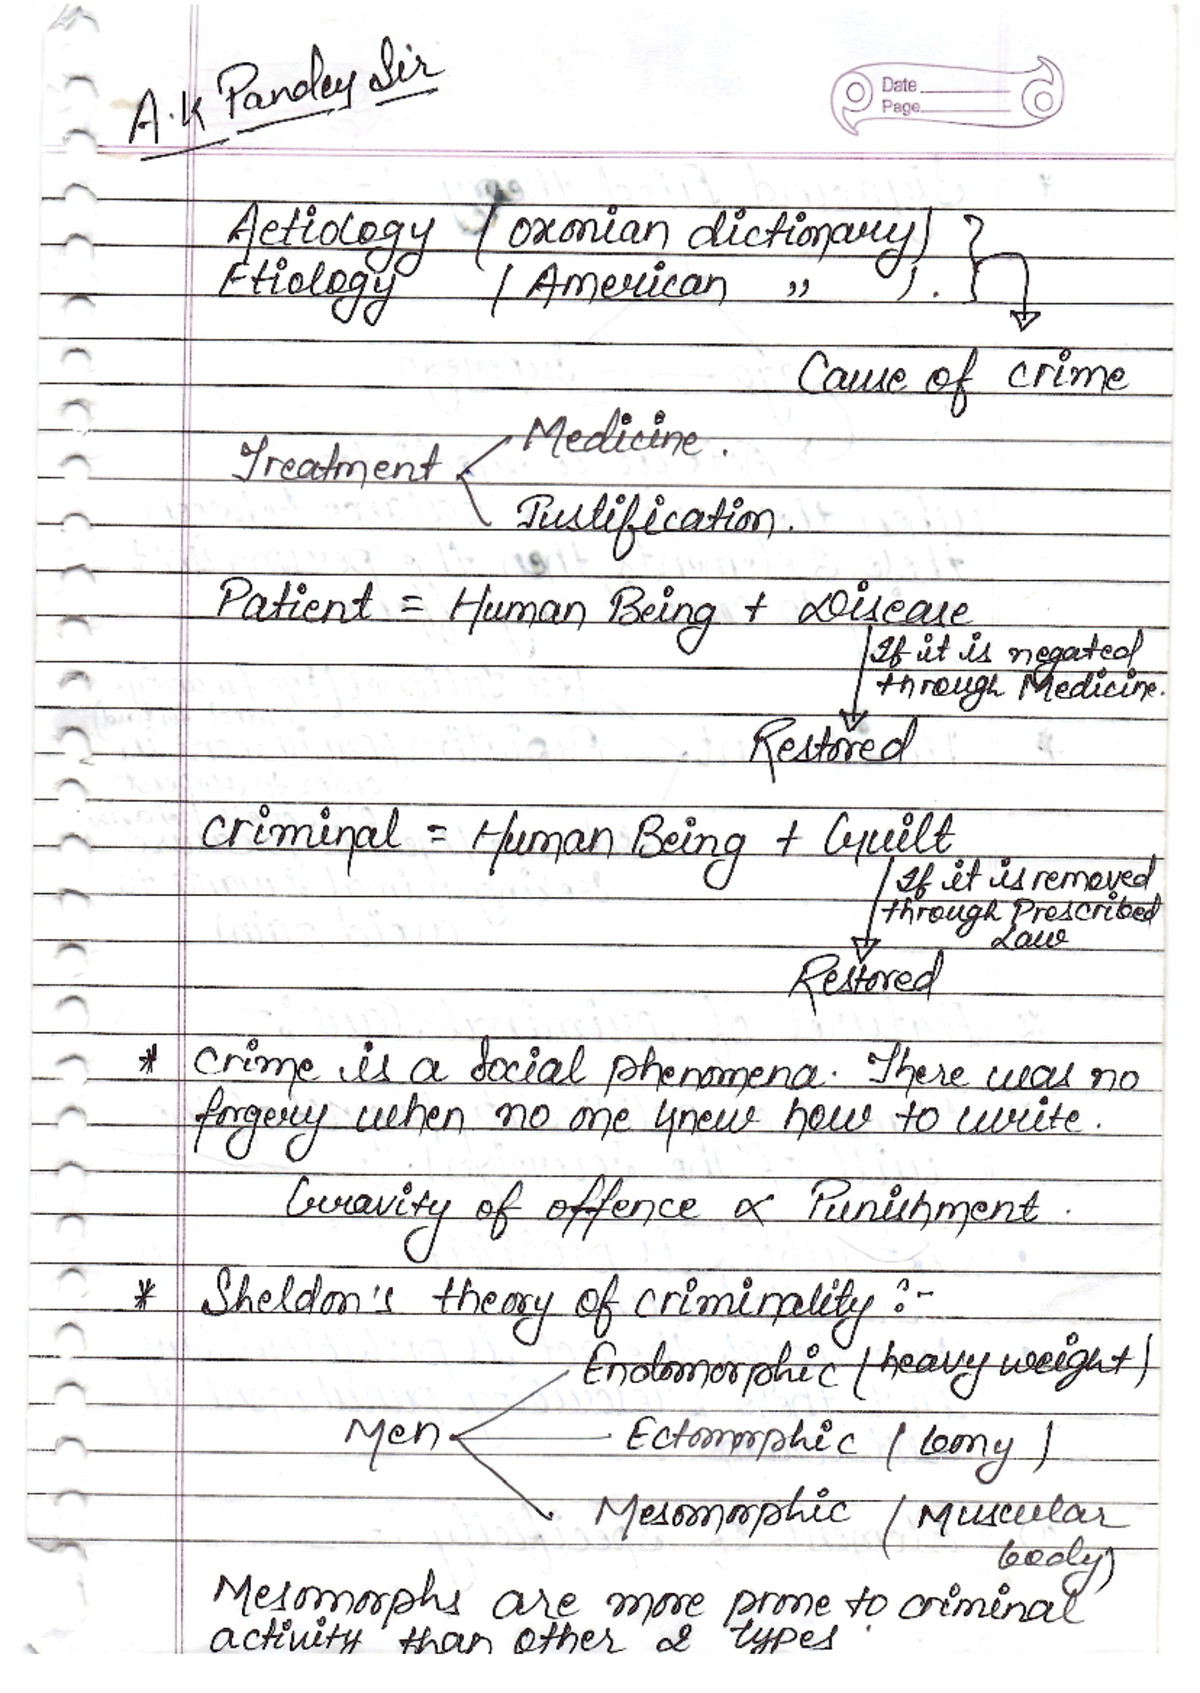 A.K Pandey Sir
Date
Page
Aetiology (oxonian dictionary)
Etiology (American ,, ).
Cause of crime
Treatment
Medicine.
Justification.
Patient = Human Being + Disease
If it is negated
through Medicine.
Restored
Criminal = Human Being + Guilt
If it is removed
through Prescribed
Law
Restored
* Crime is a Social phenomena. There was no
forgery when no one knew how to write.
Gravity of offence ∝ Punishment.
* Sheldon's theory of criminality :-
Men
Endomorphic (heavy weight)
Ectomorphic (bony)
Mesomorphic (Muscular
body)
Mesomorphs are more prone to criminal
activity than other 2 types.